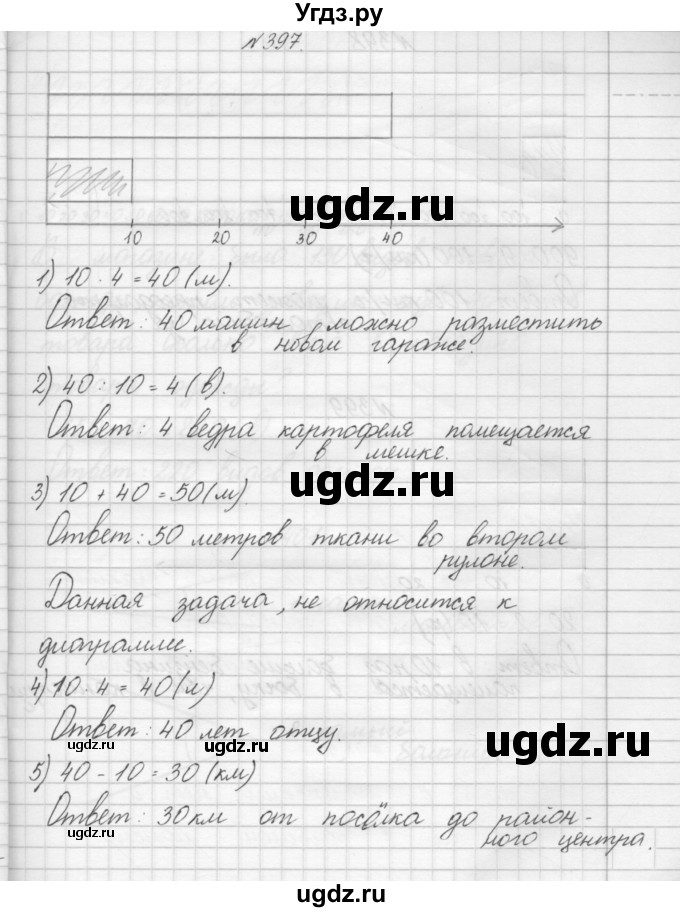 Угдз.ру
№397.
ugdz.ru
10 20 30 40
1) 10 · 4 = 40 (м).
Ответ: 40 машин можно разместить
в новом гараже.
2) 40 : 10 = 4 (в).
Ответ: 4 ведра картофеля помещается
в мешке.
ugdz.ru
3) 10 + 40 = 50 (м).
Ответ: 50 метров ткани во втором
рулоне.
Данная задача, не относится к
диаграмме.
4) 10 · 4 = 40 (л)
Ответ: 40 лет отцу.
ugdz.ru
ugdz.ru
5) 40 - 10 = 30 (км)
Ответ: 30 км от посёлка до район-
ного центра.
ugdz.ru
ugdz.ru